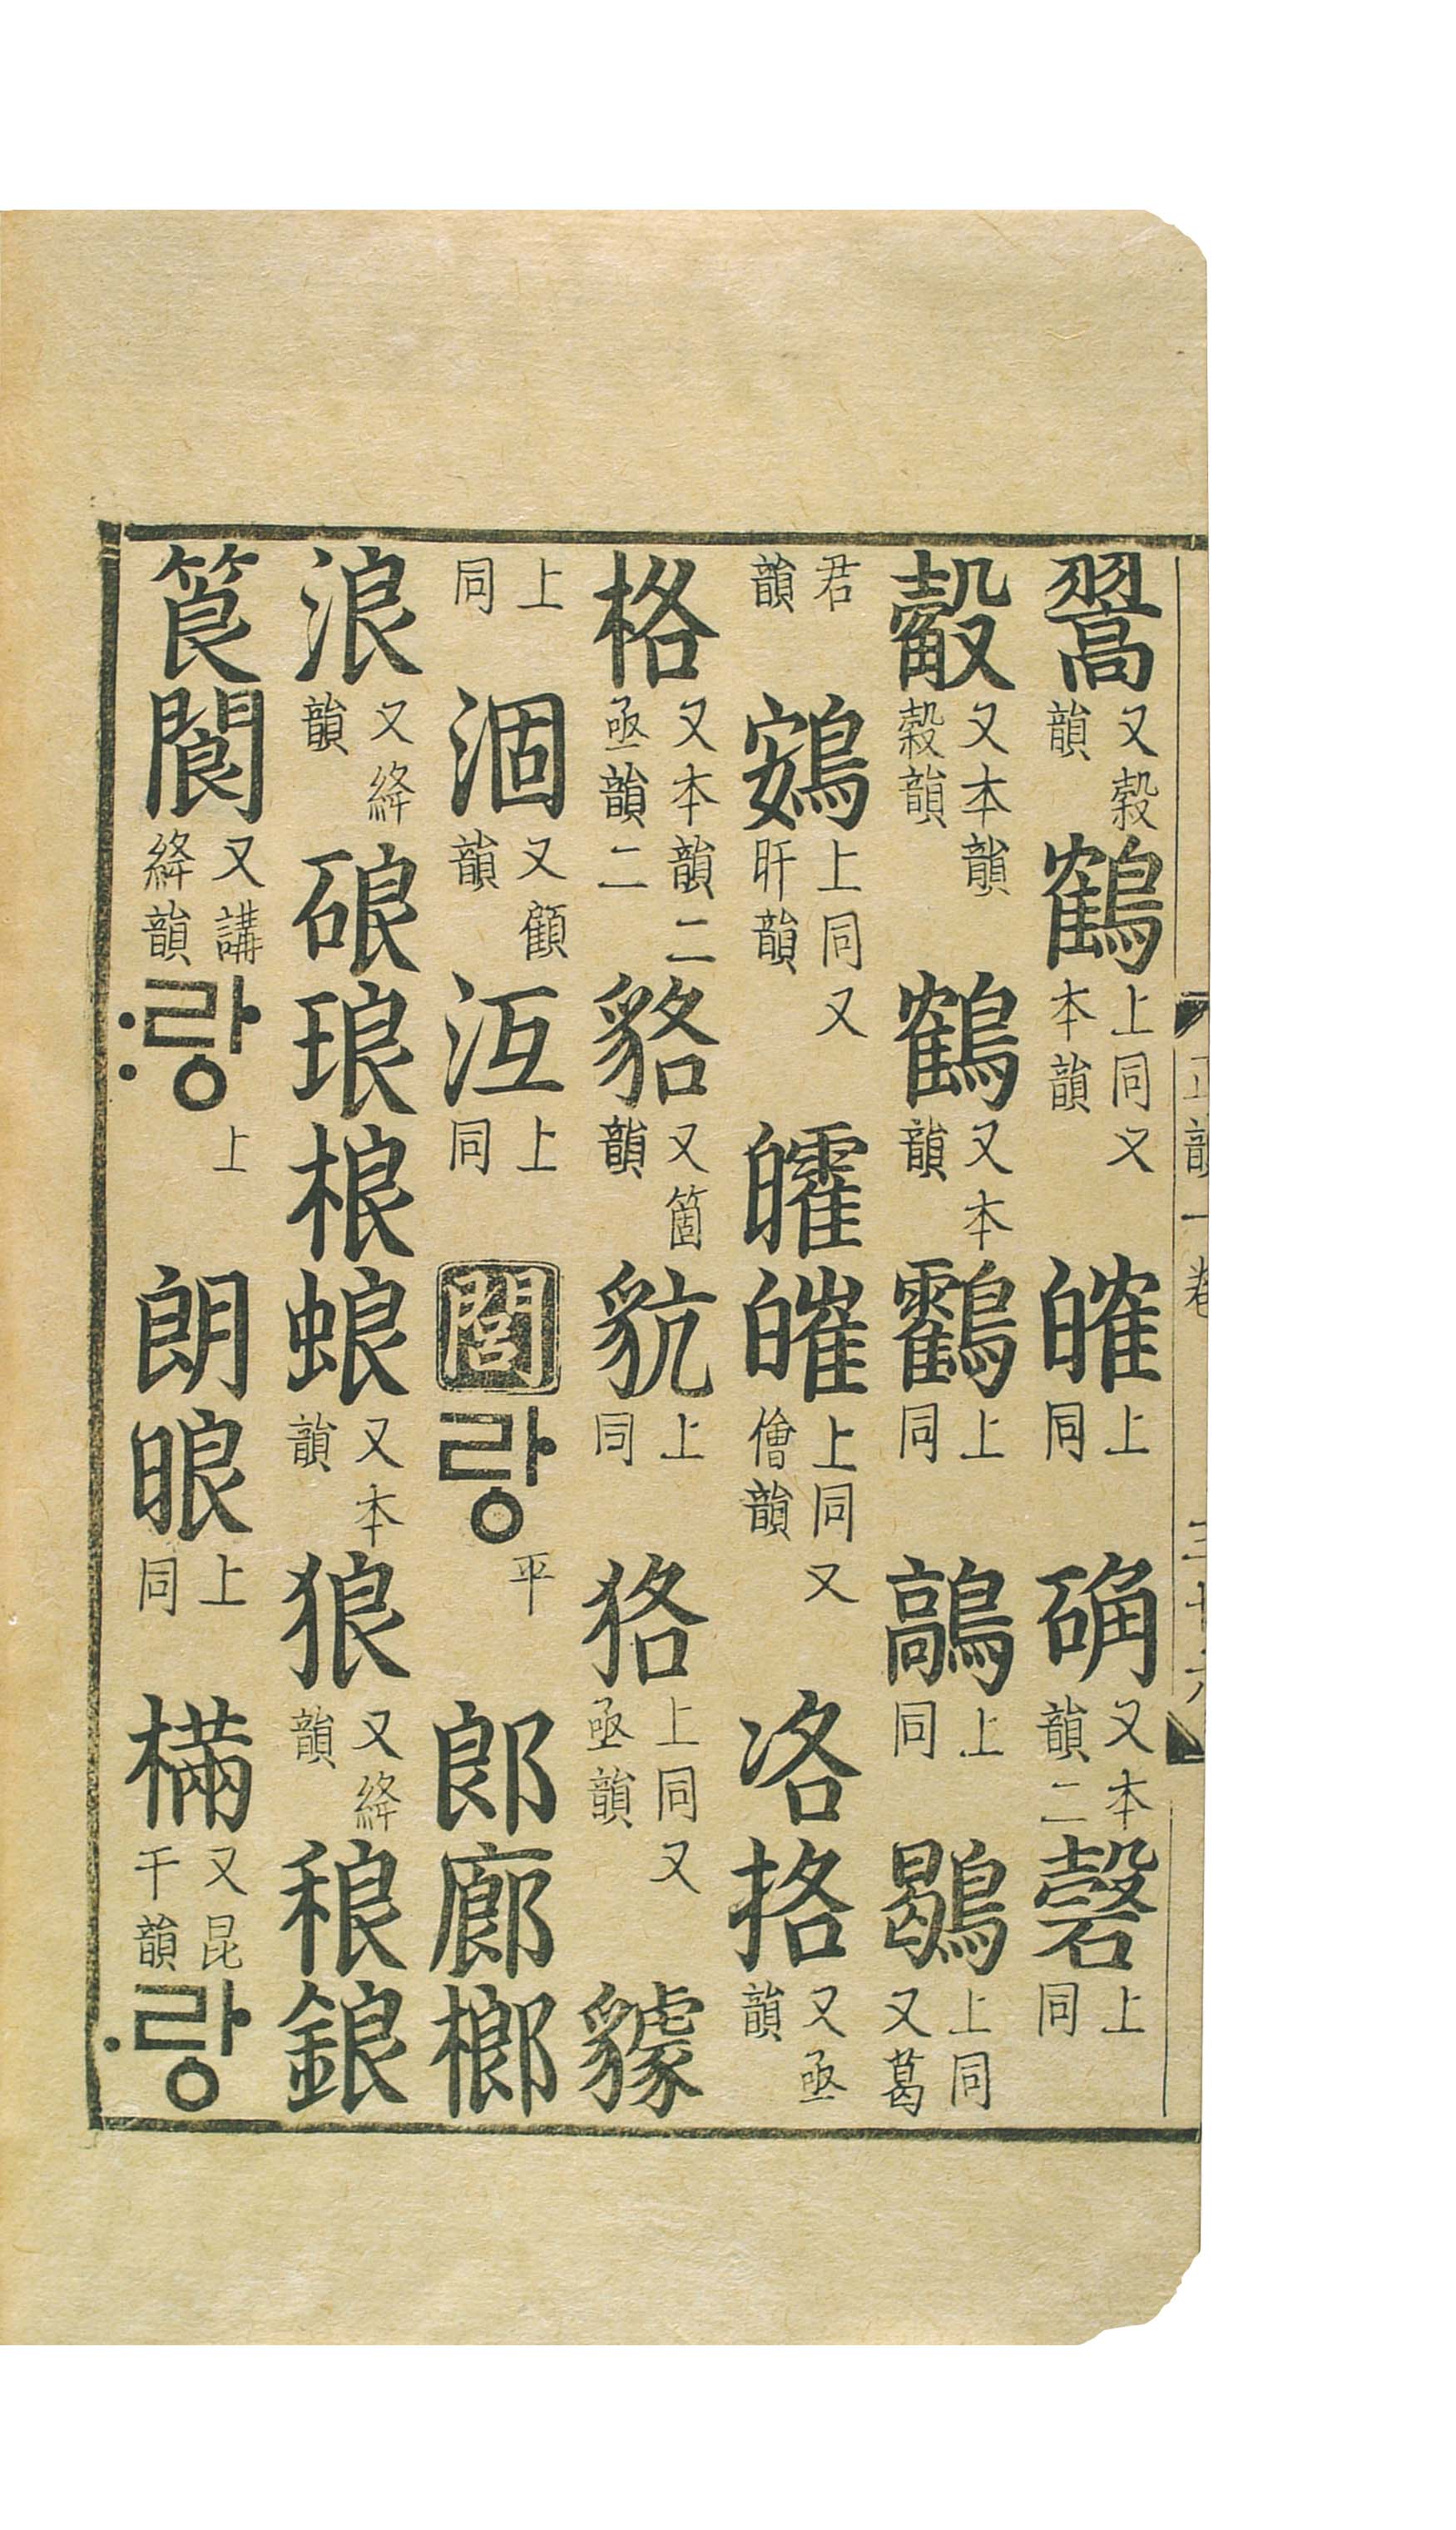 翯又穀韻鶴上同又本韻㿥上同确又本韻二磬上同
㱿又本韻穀韻鶴又本韻鸖上同鷮上同鶡上同又葛
君韻鴳上同又旰韻皬㿥上同又儈韻洛挌又亟韻
格又本韻二亟韻二貉又箇韻貥上同狢上同又亟韻貗
上同涸又顧韻沍上同閣랑平郎廊榔
浪又絳韻硠琅桹蜋又本韻狼又絳韻稂鋃
筤閬又講絳韻랑上朗㫰上同樠又昆干韻랑